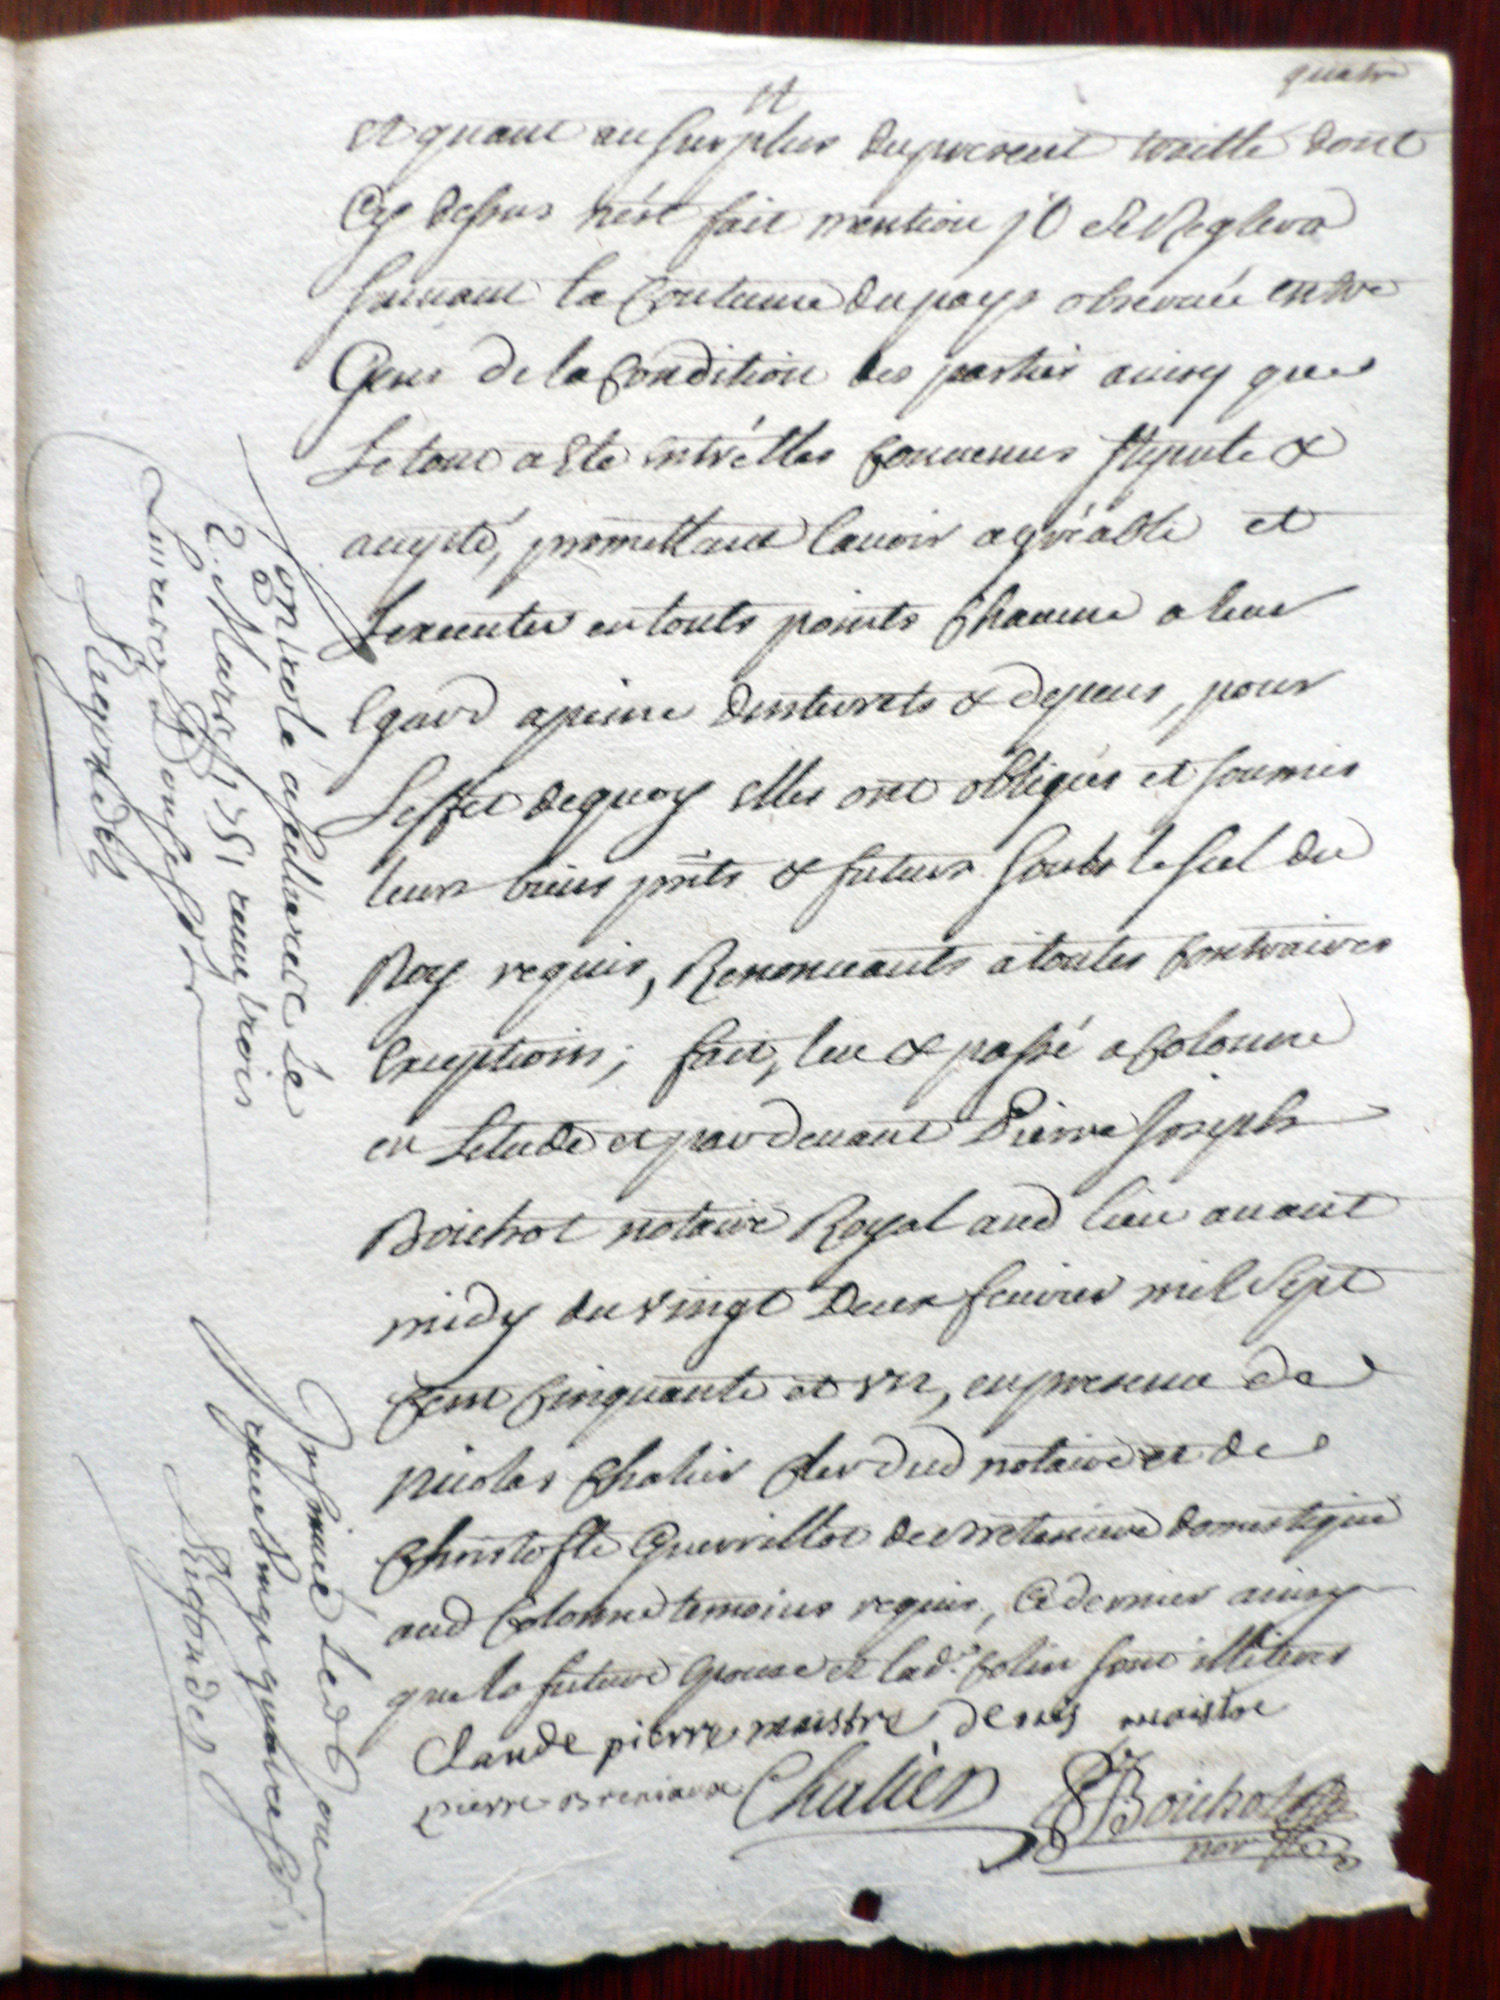 quatre
et
et quant au surplus du present traitté dont
Cy dessus n'est fait mention jl se Reglera
suiuant la Coutume du pays obseruée entre
Gens de la Condition des parties ainsy que
Le tout a Eté entr'elles Conuenus stipulé &
accepté, promettant lauoir agréable et
Lexecuter en touts points Chacune a leur
Egard a peine d'interrets & depens, pour
L'effet de quoy Elles ont obligés et soumis
leurs biens pnts & futurs souls le scel du
Roy requis, Renonceants a toutes Contraires
Exceptions; fait, leu & passé a Colonne
en Letude et par deuant Pierre Joseph
Boichot notaire Royal aud lieu auant
midy du vingt Deux feuvrier mil sept
Cent Cinquante et vn, en presence de
nicolas Chalier Cler dud notaire et de
Christofle Guerrillot de domestique
aud Colonne temoins requis, Ce dernier ainsy
que la future Epouse et lad. Colin sont illiteres
Claude pierre maistre denis maistre
pierre Breniaux Chalier Boichot
nore
controlé a sellieres Le
2. Mars 1751 receu trois
Liures
Rigondet
Insinué Led jour
receu quatre
Rigondet